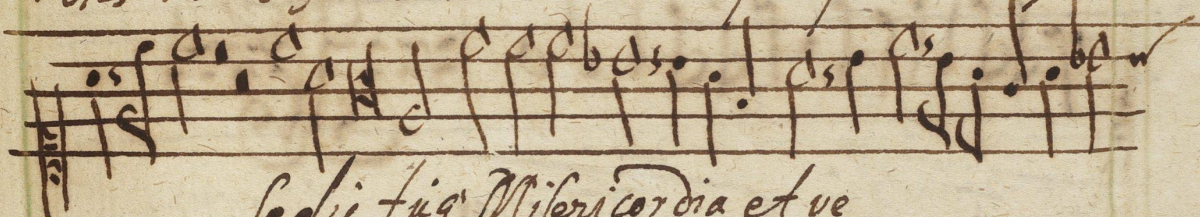 sedis tuę Misericordia et ve